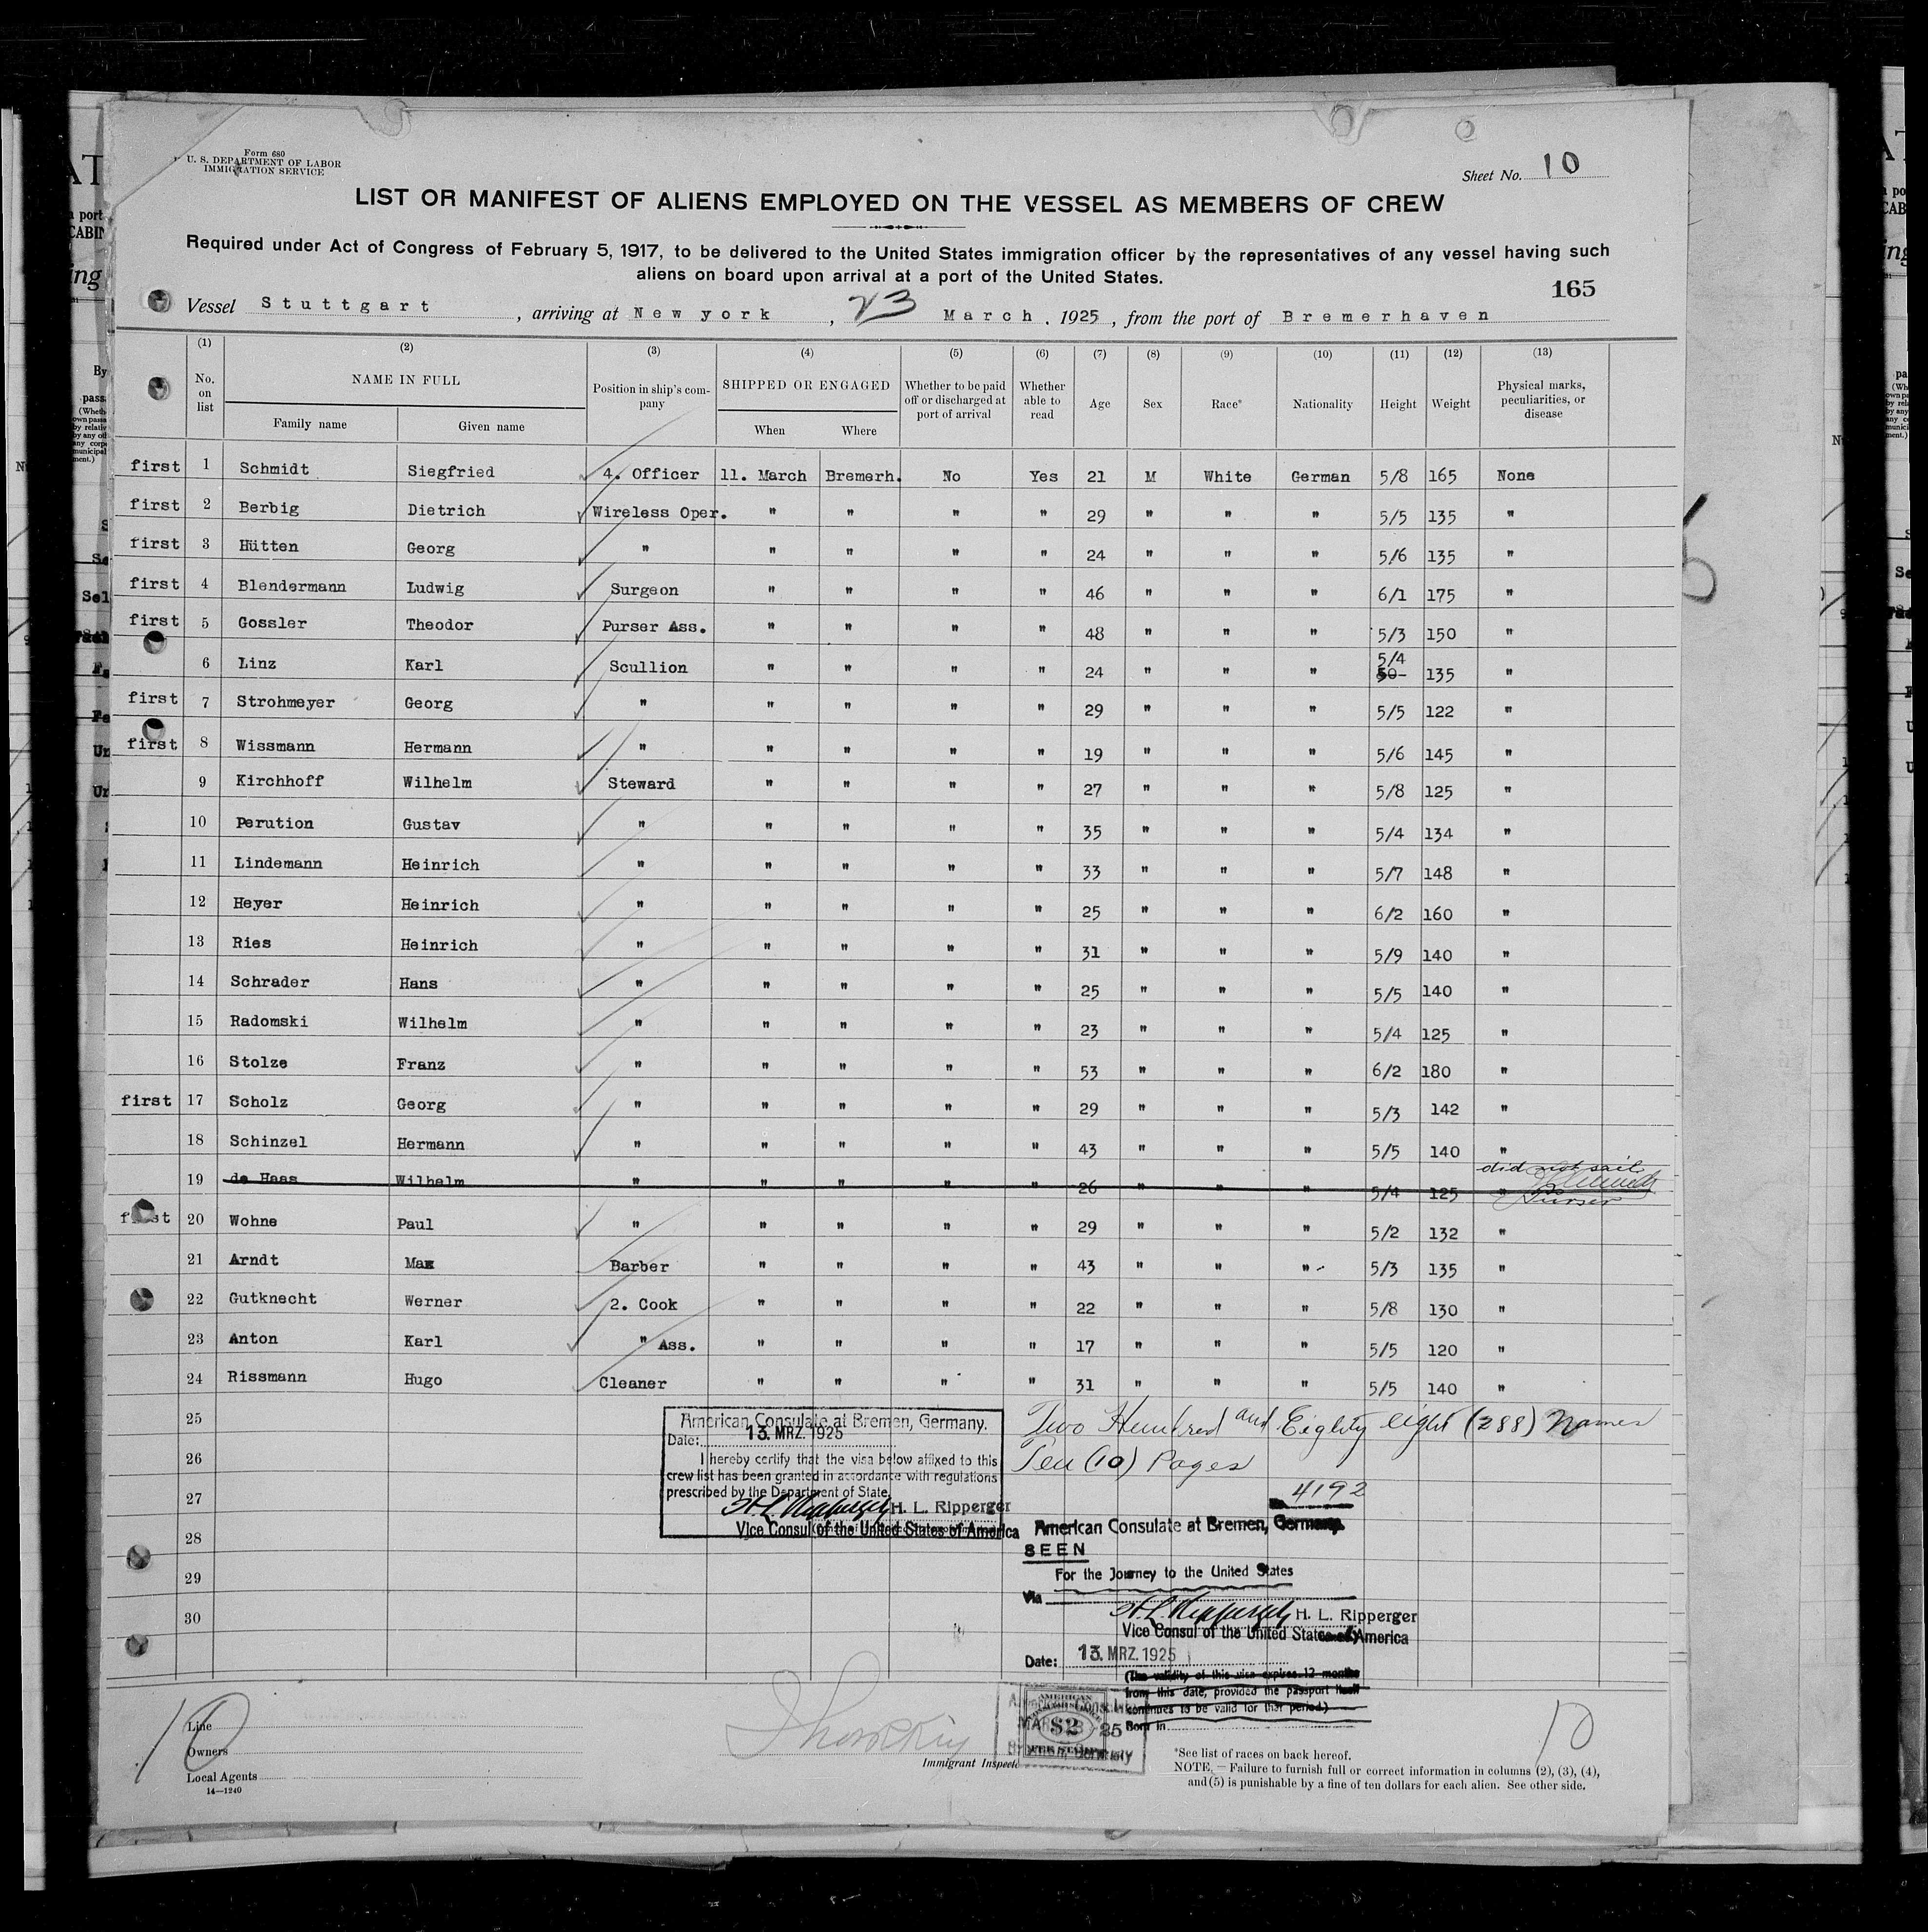 Form 680
U. S. DEPARTMENT OF LABOR
IMMIGRATION SERVICE
Sheet No. 10
LIST OR MANIFEST OF ALIENS EMPLOYED ON THE VESSEL AS MEMBERS OF CREW
Required under Act of Congress of February 5, 1917, to be delivered to the United States immigration officer by the representatives of any vessel having such
aliens on board upon arrival at a port of the United States.
165
Vessel Stuttgart, arriving at New york, 23 March, 1925, from the port of Bremerhaven
(1) (2) (3) (4) (5) (6) (7) (8) (9) (10) (11) (12) (13)
No. on list NAME IN FULL Family name Given name Position in ship's company SHIPPED OR ENGAGED When Where Whether to be paid off or discharged at port of arrival Whether able to read Age Sex Race* Nationality Height Weight Physical marks, peculiarities, or disease
first 1 Schmidt Siegfried 4. Officer 11. March Bremerh. No Yes 21 M White German 5/8 165 None
first 2 Berbig Dietrich Wireless Oper. " " " " 29 " " " 5/5 135 "
first 3 Hütten Georg " " " " " 24 " " " 5/6 135 "
first 4 Blendermann Ludwig Surgeon " " " " 46 " " " 6/1 175 "
first 5 Gossler Theodor Purser Ass. " " " " 48 " " " 5/3 150 "
6 Linz Karl Scullion " " " " 24 " " " 5/4 135 "
first 7 Strohmeyer Georg " " " " " 29 " " " 5/5 122 "
first 8 Wissmann Hermann " " " " " 19 " " " 5/6 145 "
9 Kirchhoff Wilhelm Steward " " " " 27 " " " 5/8 125 "
10 Perution Gustav " " " " " 35 " " " 5/4 134 "
11 Lindemann Heinrich " " " " " 33 " " " 5/7 148 "
12 Heyer Heinrich " " " " " 25 " " " 6/2 160 "
13 Ries Heinrich " " " " " 31 " " " 5/9 140 "
14 Schrader Hans " " " " " 25 " " " 5/5 140 "
15 Radomski Wilhelm " " " " " 23 " " " 5/4 125 "
16 Stolze Franz " " " " " 53 " " " 6/2 180 "
first 17 Scholz Georg " " " " " 29 " " " 5/3 142 "
18 Schinzel Hermann " " " " " 43 " " " 5/5 140 "
did not sail
19 de Haas Wilhelm " " " " " 26 " " " 5/4 125 "
Purser
first 20 Wohne Paul " " " " " 29 " " " 5/2 132 "
21 Arndt Max Barber " " " " 43 " " " 5/3 135 "
22 Gutknecht Werner 2. Cook " " " " 22 " " " 5/8 130 "
23 Anton Karl " Ass. " " " " 17 " " " 5/5 120 "
24 Rissmann Hugo Cleaner " " " " 31 " " " 5/5 140 "
25
26
27
28
29
30
American Consulate at Bremen, Germany.
Date: 13. MRZ. 1925
I hereby certify that the visa below affixed to this
crew list has been granted in accordance with regulations
prescribed by the Department of State.
H. L. Ripperger H. L. Ripperger
Vice Consul of the United States of America
Two Hundred and Eighty eight (288) Names
Ten (10) Pages
4192
American Consulate at Bremen, Germany.
SEEN
For the Journey to the United States
Via
H. L. Ripperger H. L. Ripperger
Vice Consul of the United States of America
Date: 13. MRZ. 1925
(The validity of this visa expires 12 months
from this date, provided the passport itself
continues to be valid for that period.)
Born in
AMERICAN
$2
10
Line
Owners
Local Agents
14—1240
Immigrant Inspector
10
*See list of races on back hereof.
NOTE.—Failure to furnish full or correct information in columns (2), (3), (4),
and (5) is punishable by a fine of ten dollars for each alien. See other side.